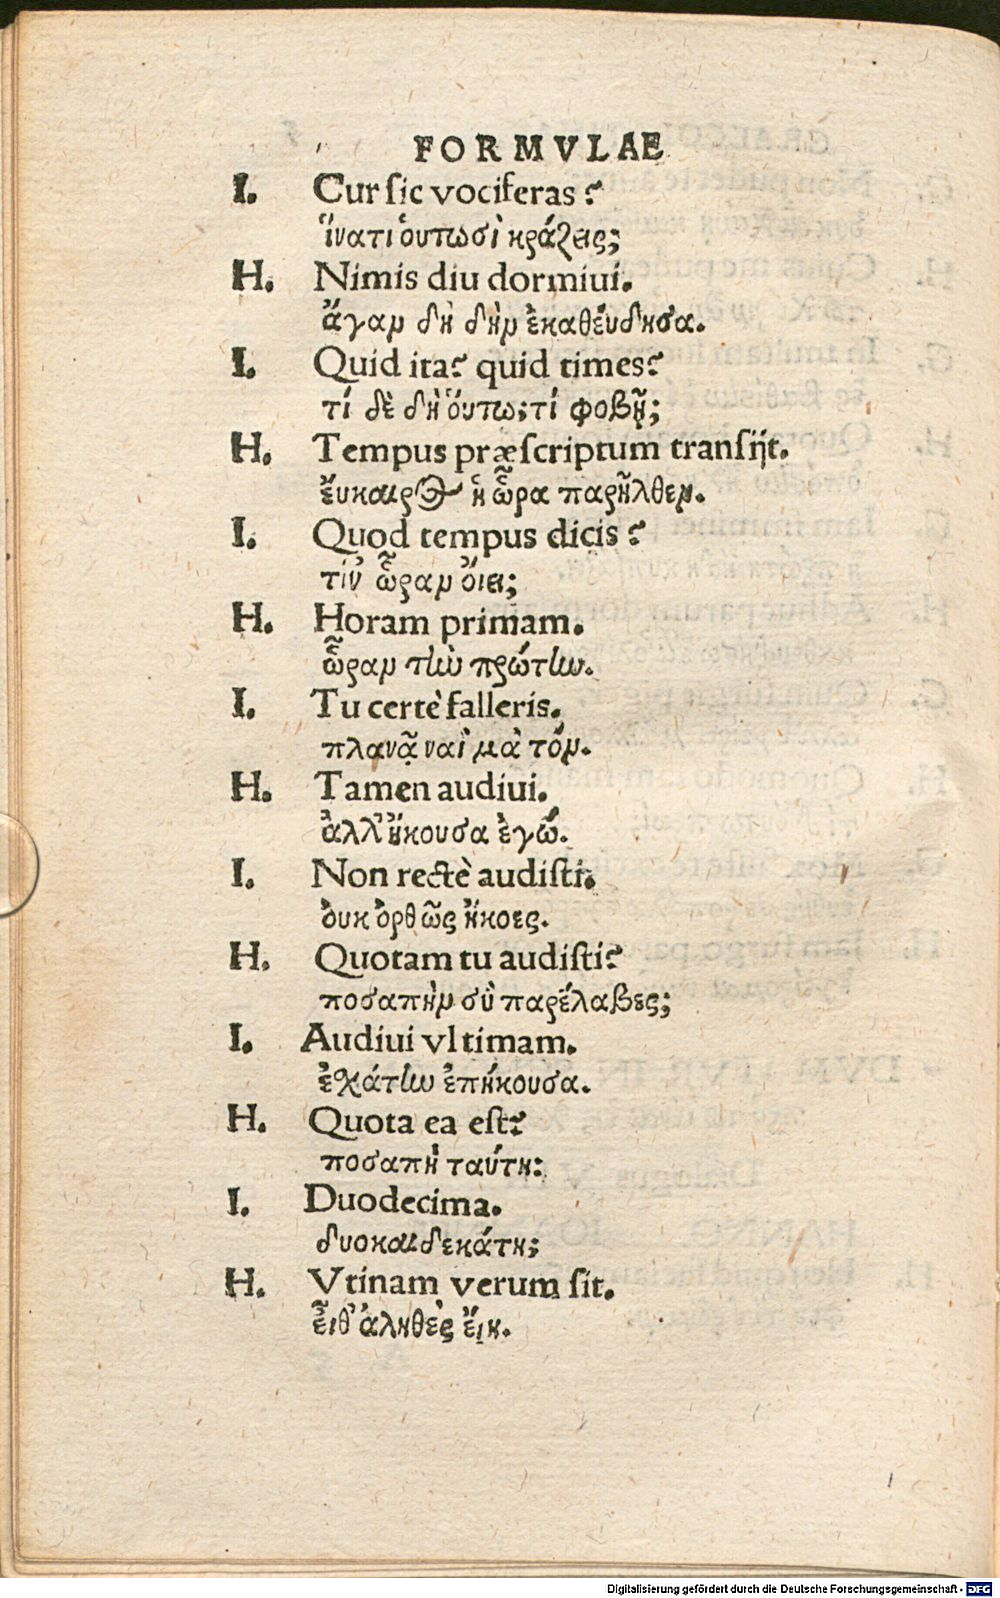 FORMVLAE
I. Cur sic vociferas?
ἵνατι ὁυτωσὶ κράζεις;
H. Nimis diu dormiui.
ἄγαν δὴ δὴν ἐκαθέυδησα.
I. Quid ita? quid times?
τί δὲ δὴ ὅυτω; τί φοβῇ;
H. Tempus præscriptum transijt.
ἔυκαιρος ἡ ὥρα παρῆλθεν.
I. Quod tempus dicis?
τίν ὥραν ὄιει;
H. Horam primam.
ὥραν τὴν πρώτην.
I. Tu certè falleris.
πλανᾷ ναὶ μὰ τόν.
H. Tamen audiui.
ἀλλ' ἤκουσα ἐγώ.
I. Non rectè audisti.
ὀυκ ὀρθῶς ἤκοες.
H. Quotam tu audisti?
ποσαπὴν σὺ παρέλαβες;
I. Audiui vltimam.
ἐχάτην ἐπήκουσα.
H. Quota ea est?
ποσαπὴ ταύτη:
I. Duodecima.
δυοκαιδεκάτη;
H. Vtinam verum sit.
ἔιθ' ἀληθὲς ἔιη.
Digitalisierung gefördert durch die Deutsche Forschungsgemeinschaft - DFG